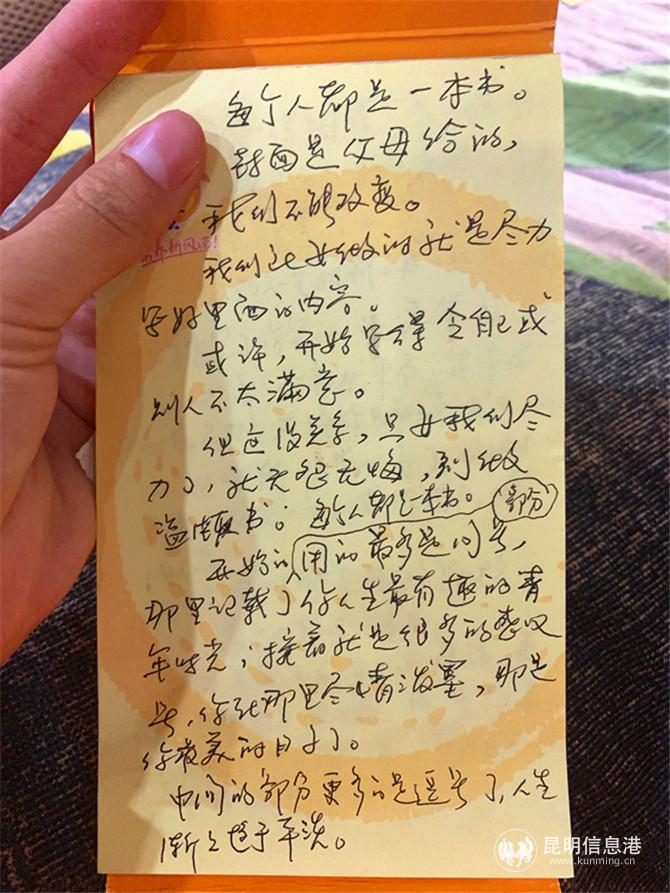 每个人都是一本书。
封面是父母给的，
我们不能改变。
我们要做的就是尽力
写好里面的内容。
或许，开始写得令自己或
别人不太满意。
但这没关系，只要我们尽
力了，就无怨无悔，别做
盗版书；每个人都是一本书。
部分
开始的用的最多是问号，
那里记载了你人生最有趣的青
年时光；接着就是很多的感叹
号，你在那里尽情泼墨，那是
你最美的日子了。
中间的部分更多的是逗号了，人生
渐渐趋于平淡。
昆明信息港
www.kunming.cn